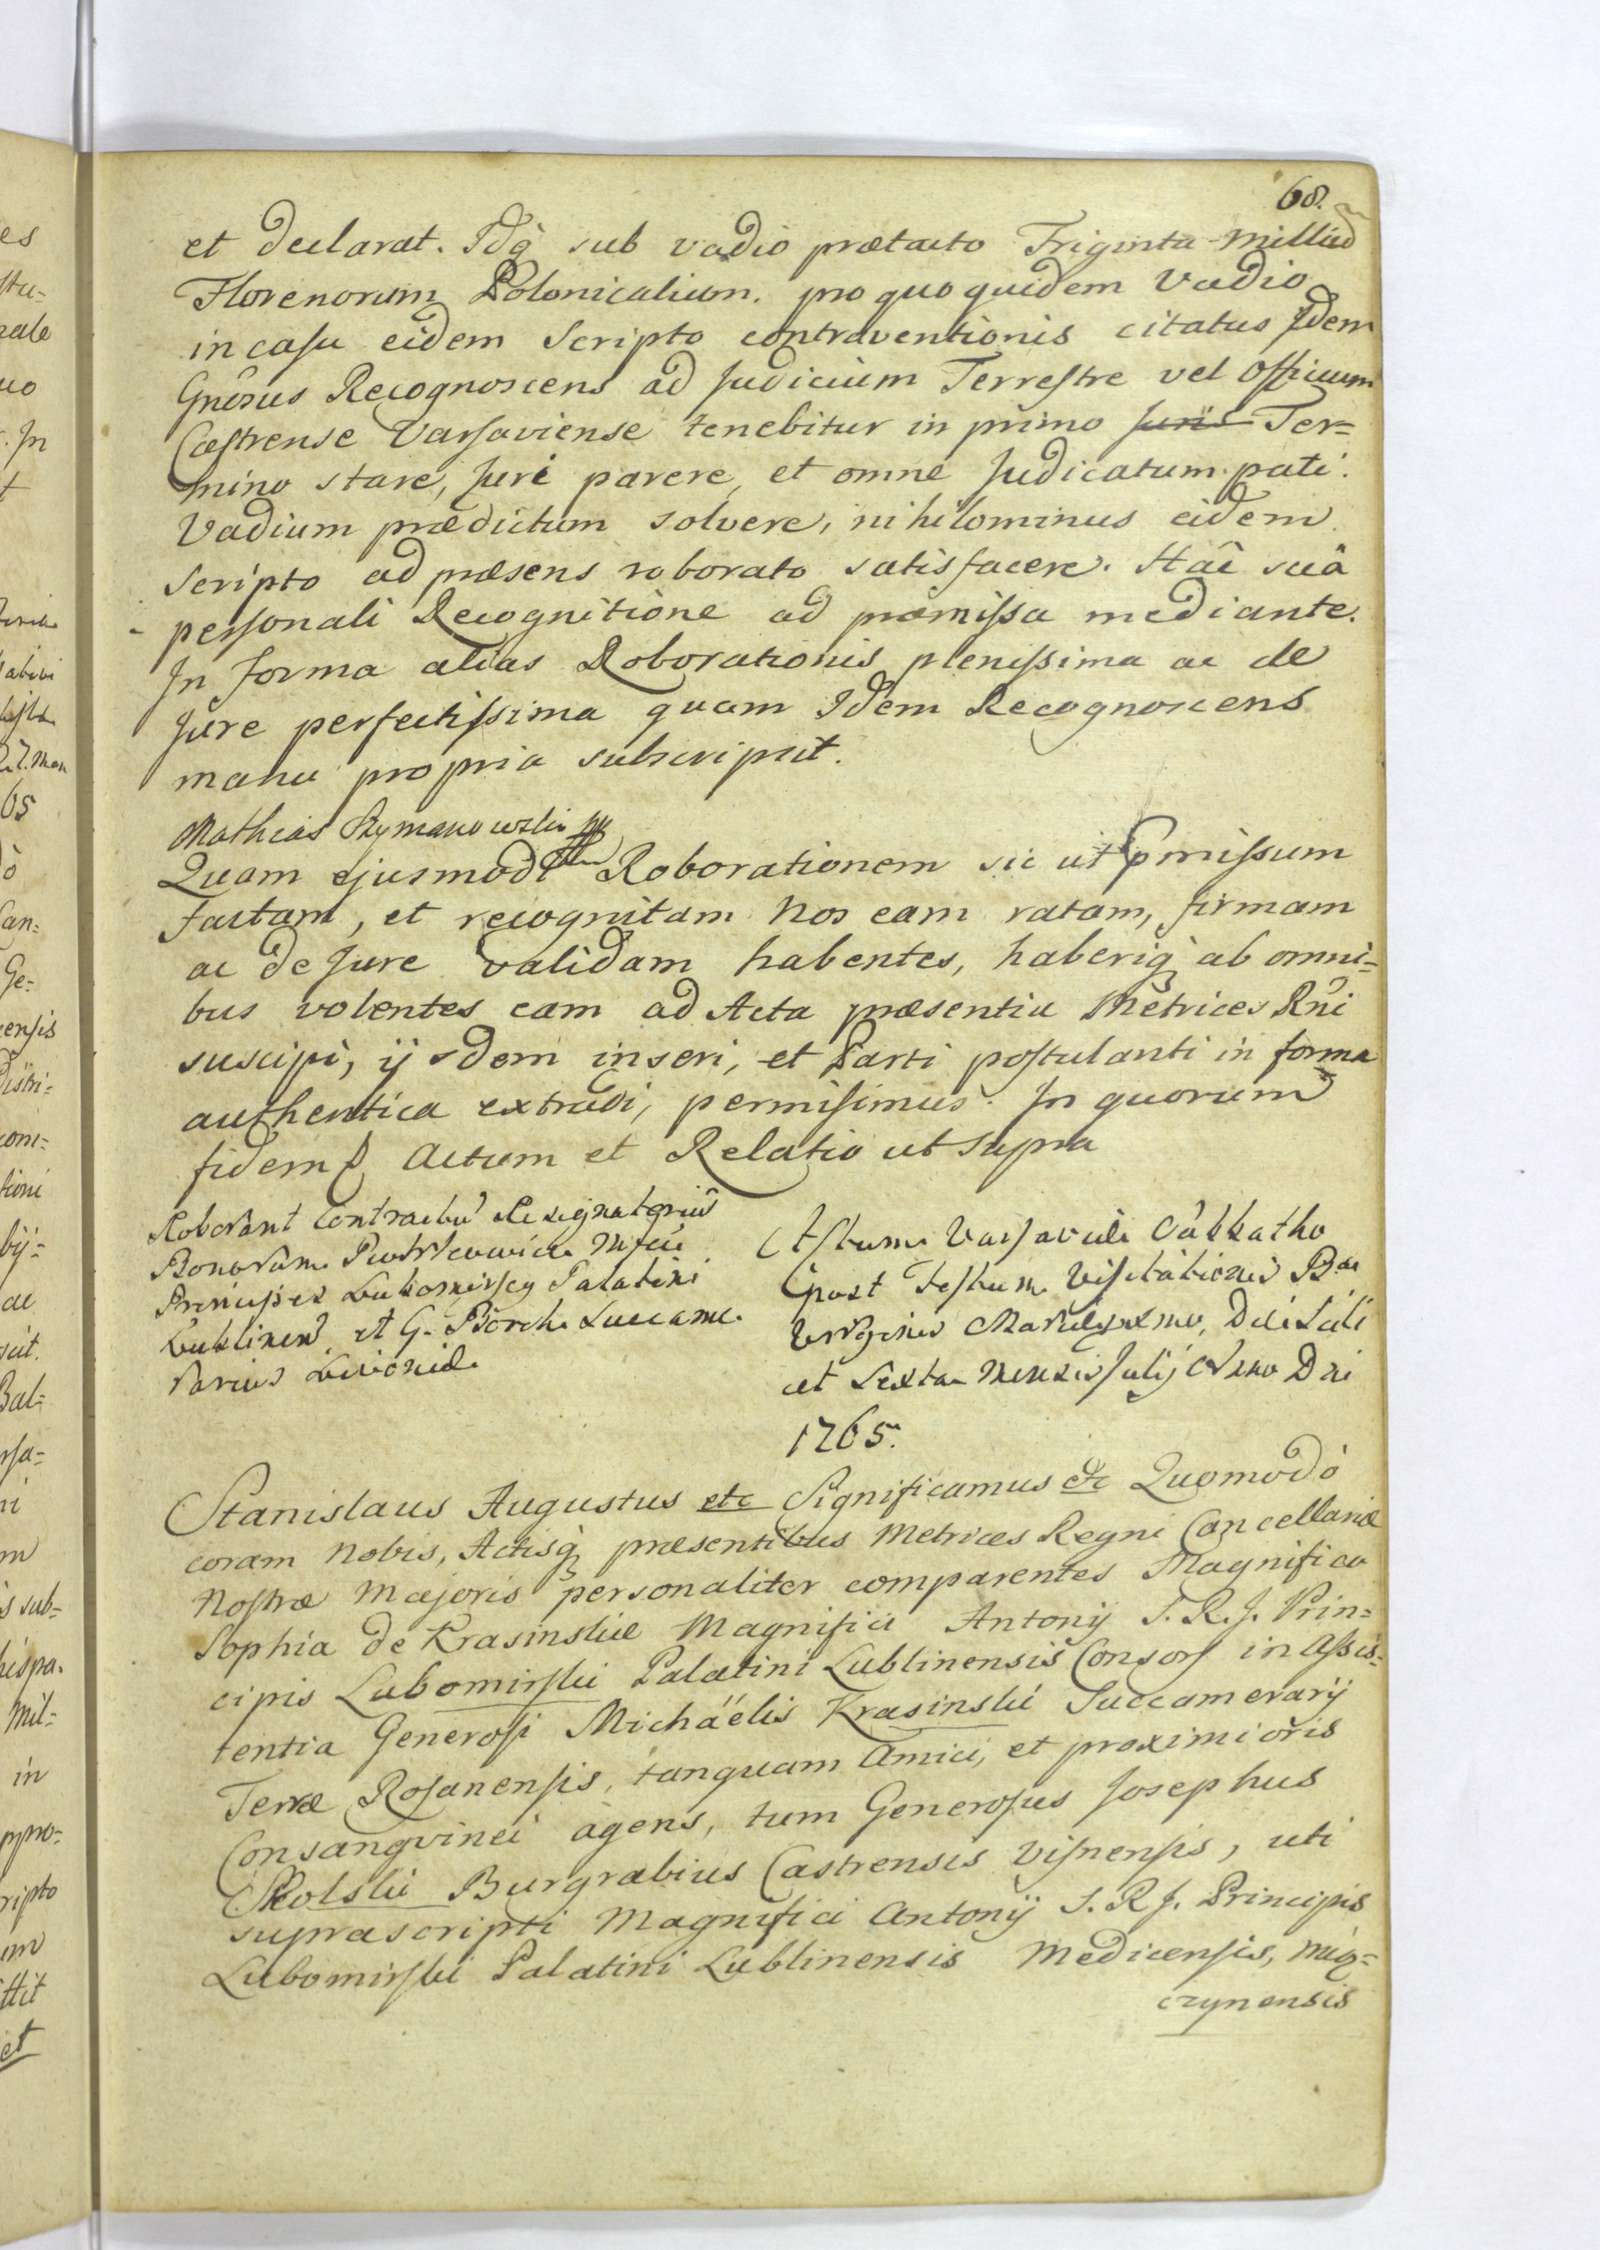 68.
et declarat. Idq̀ sub vadio prætacto Triginta Milliũ
Florenorum Polonicalium. pro quo quidem Vadio
in casu eidem Scripto contraventionis citatus Idem
Gnõsus Recognoscens ad Judicium Terrestre vel Officium
Castrense Varsaviense tenebitur in primo Juris Ter=
mino stare, Juri parere, et omne Judicatum pati.
Vadium prædictum solvere, nihilominus eidem
Scripto ad præsens roborato satisfacere. Hac suâ
personali Recognitione ad præmissa mediante.
In forma alias Roborationis plenissima ac de
Jure perfectissima quam Idem Recognoscens
manu propria subscripsit.
Mathias Szymanowski mp
Quam ejusmodi Roborationem sic ut pmissum
factam, et recognitam Nos eam ratam, firmam
ac de Jure validam habentes, haberiq̀ ab omni=
bus volentes eam ad Acta præsentia Metrices Rñi
suscipi, ijsdem inseri, et Parti postulanti in forma
authentica extradi, permisimus. In quorum
fidem Actum et Relatio ut supra
Roborant Contractũ Resignatoriũ
Bonorum Piotrkowice Mfcũ
Princeps Lubomirscy Palatini
Lublinen̄ et G. Borch Succame-
rarius Livoniæ
Actum Varsaviæ Sabbatho
post Festum Visitationis Bæ
Virginis Mariæ, Die Scili
et Sexta Mensis Julij Anno Dñi
1765.
Stanislaus Augustus etc Significamus etc Quomodò
coram Nobis, Actisq̀ præsentibus Metrices Regni Cancellariæ
Nostræ Majoris personaliter comparentes Magnifica
Sophia de Krasinskie Magnifici Antonij S. R. J. Prin=
cipis Lubomirski Palatini Lublinensis Consors in Assis=
tentia Generosi Michäelis Krasinski Succamerarij
Terræ Rosanensis, tanquam Amici, et proximioris
Consangvinei agens, tum Generosus Josephus
Skolski Burgrabius Castrensis Visnensis, uti
suprascripti Magnifici Antonij S. R J. Principis
Lubomirski Palatini Lublinensis Medicensis, Mię=
czynensis